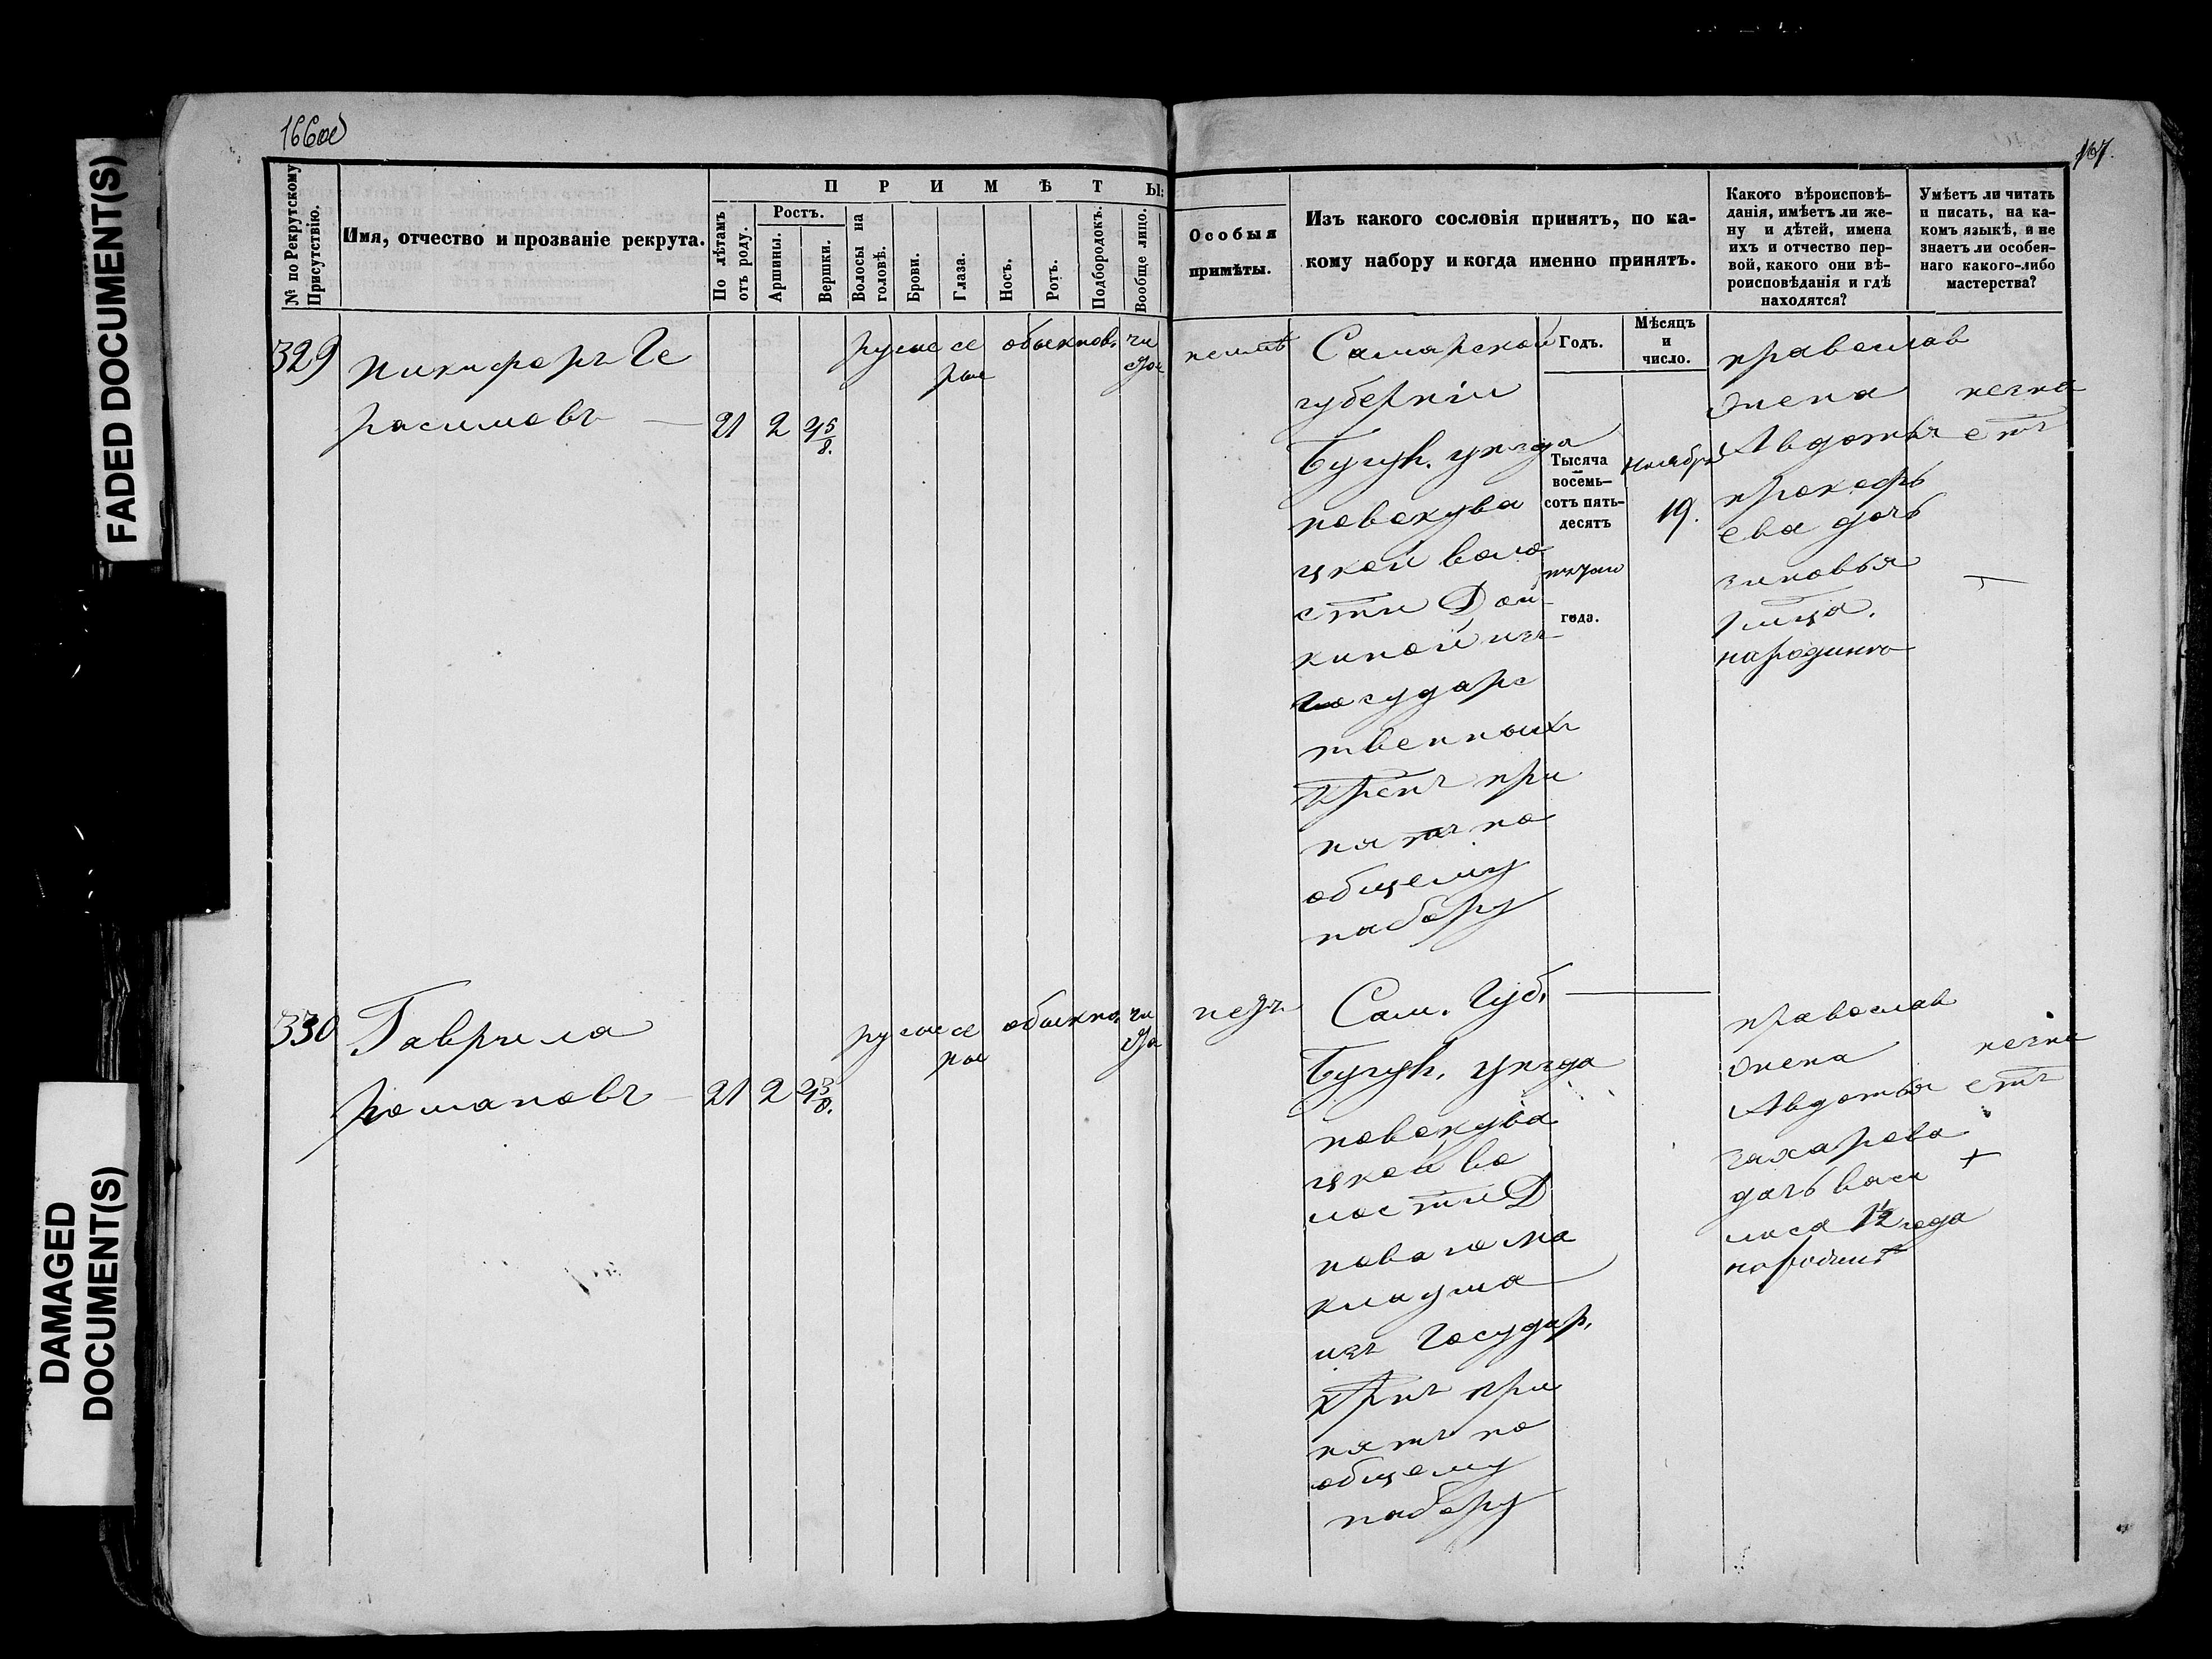 FADED DOCUMENT(S)
DAMAGED
DOCUMENT(S)
166об
167.
№ по Рекрутскому
Присутствію.
Имя, отчество и прозваніе рекрута.
ПРИМѢТЫ:
По лѣтамъ
отъ роду.
Ростъ.
Аршины.
Вершки.
Волосы на
головѣ.
Брови.
Глаза.
Носъ.
Ротъ.
Подбородокъ.
Вообще лицо.
Особыя
примѣты.
Изъ какого сословія принятъ, по ка-
кому набору и когда именно принятъ.
Какого вѣроисповѣ-
данія, имѣетъ ли же-
ну и дѣтей, имена
ихъ и отчество пер-
вой, какого они вѣ-
роисповѣданія и гдѣ
находятся?
Умѣетъ ли читать
и писать, на ка-
комъ языкѣ, и не
знаетъ ли особен-
наго какого-либо
мастерства?
Годъ.
Мѣсяцъ
и
число.
329
Никифоръ Ге
расимовъ
21 2 4 5/8.
русые се
рые
обыкнов.
чи
стое
Самарской
губерніи
Бугул. уѣзда
новокува
цкой воло
сти Д
киной изъ
государс
твенныхъ
крестъ при
нятъ по
общему
набору
Тысяча
восемь-
сотъ пять-
десятъ
года.
Ноября
19.
православ
жена
Авдотья
прокофь
ева дочь
зиновья
народинѣ
незна
етъ
—
330
Гаврила
романовъ
21 2 4 3/8.
русые се
рые
обыкно.
чи
сто
Сам. Губ.
Бугул. уѣзда
новокува
цкой во
лости Д
изъ Государ.
крнъ при
нятъ по
общему
набору
православ
жена
Авдотья
захарова
дочь васи
лиса 1½ года
народинѣ
незна
етъ
+